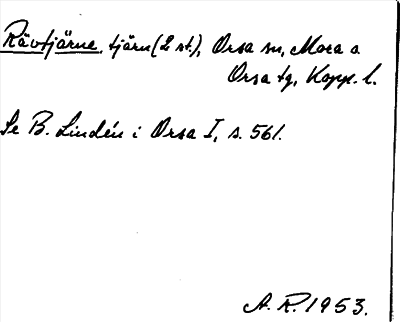 Rävtjärne, tjärn (2 st.), Orsa sn, Mora o
Orsa tg, Kopp. l.
Se B. Lindén i Orsa I, s. 561.
A. R. 1953.